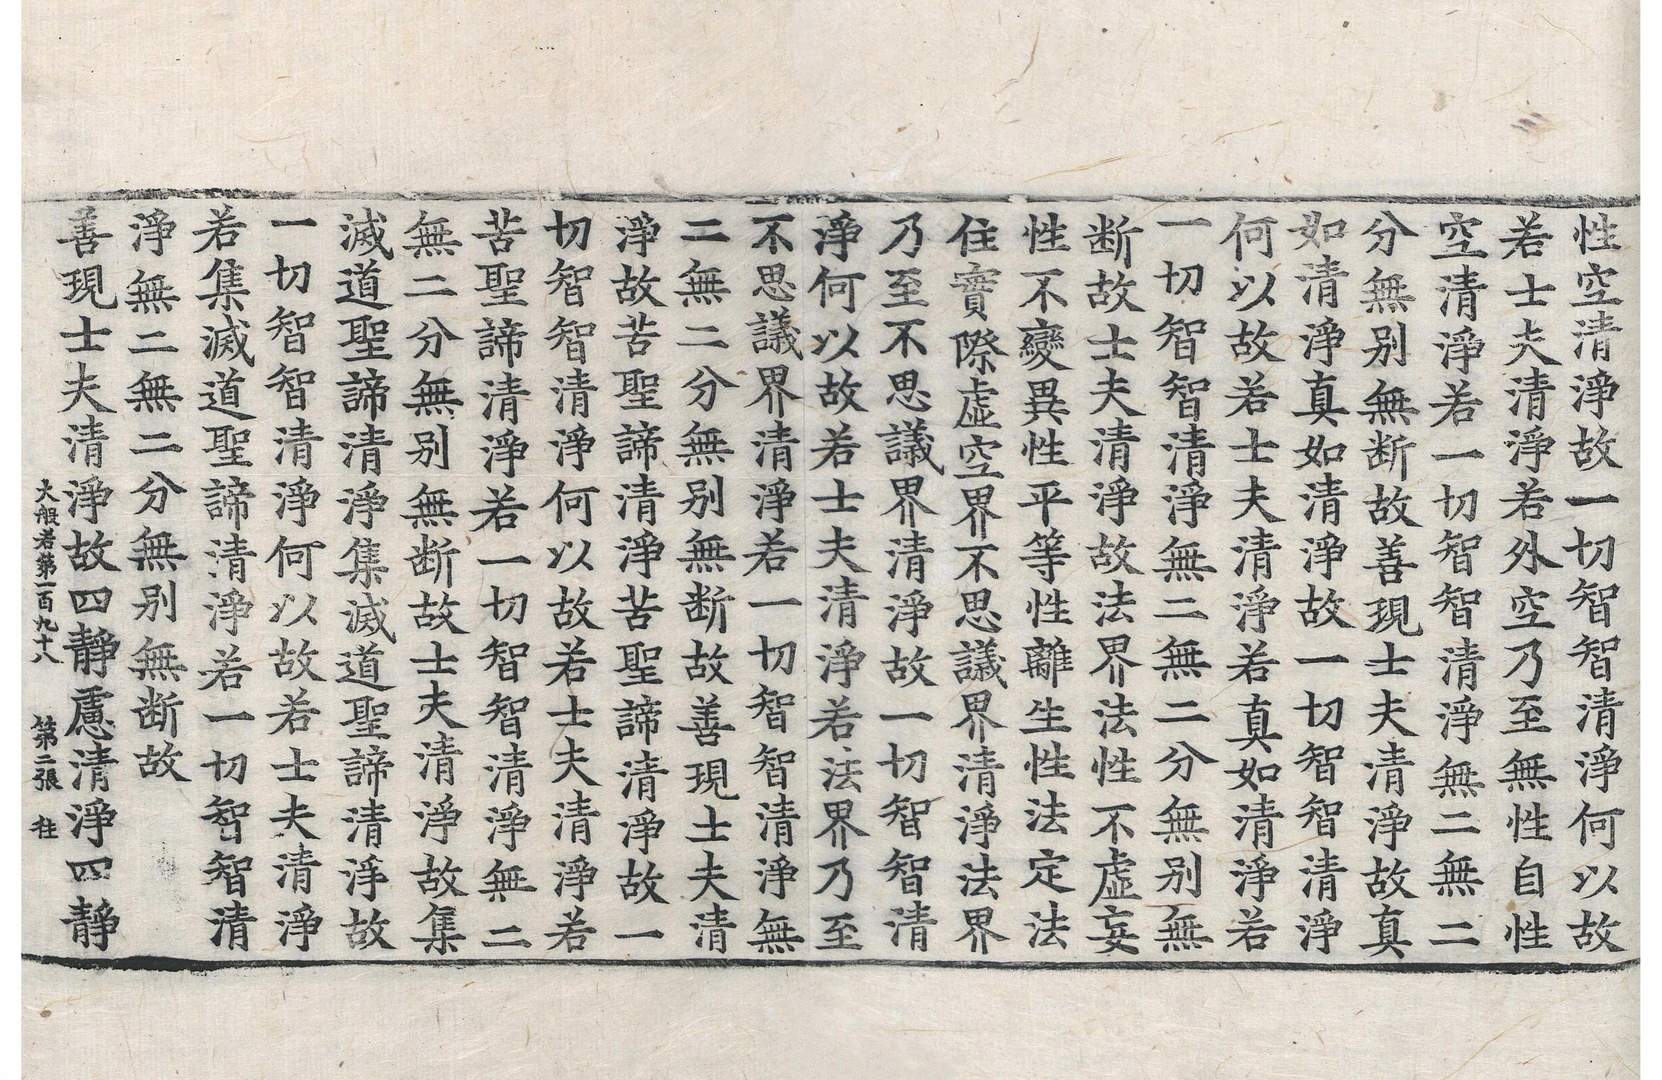 性空清淨故一切智智清淨何以故
若士夫清淨若外空乃至無性自性
空清淨若一切智智清淨無二無二
分無別無断故善現士夫清淨故真
如清淨真如清淨故一切智智清淨
何以故若士夫清淨若真如清淨若
一切智智清淨無二無二分無別無
断故士夫清淨故法界法性不虛妄
性不變異性平等性離生性法定法
住實際虛空界不思議界清淨法界
乃至不思議界清淨故一切智智清
淨何以故若士夫清淨若法界乃至
不思議界清淨若一切智智清淨無
二無二分無別無断故善現士夫清
淨故苦聖諦清淨苦聖諦清淨故一
切智智清淨何以故若士夫清淨若
苦聖諦清淨若一切智智清淨無二
無二分無別無断故士夫清淨故集
滅道聖諦清淨集滅道聖諦清淨故
一切智智清淨何以故若士夫清淨
若集滅道聖諦清淨若一切智智清
淨無二無二分無別無断故
善現士夫清淨故四靜慮清淨四靜
大般若第一百九十八 第二張 往